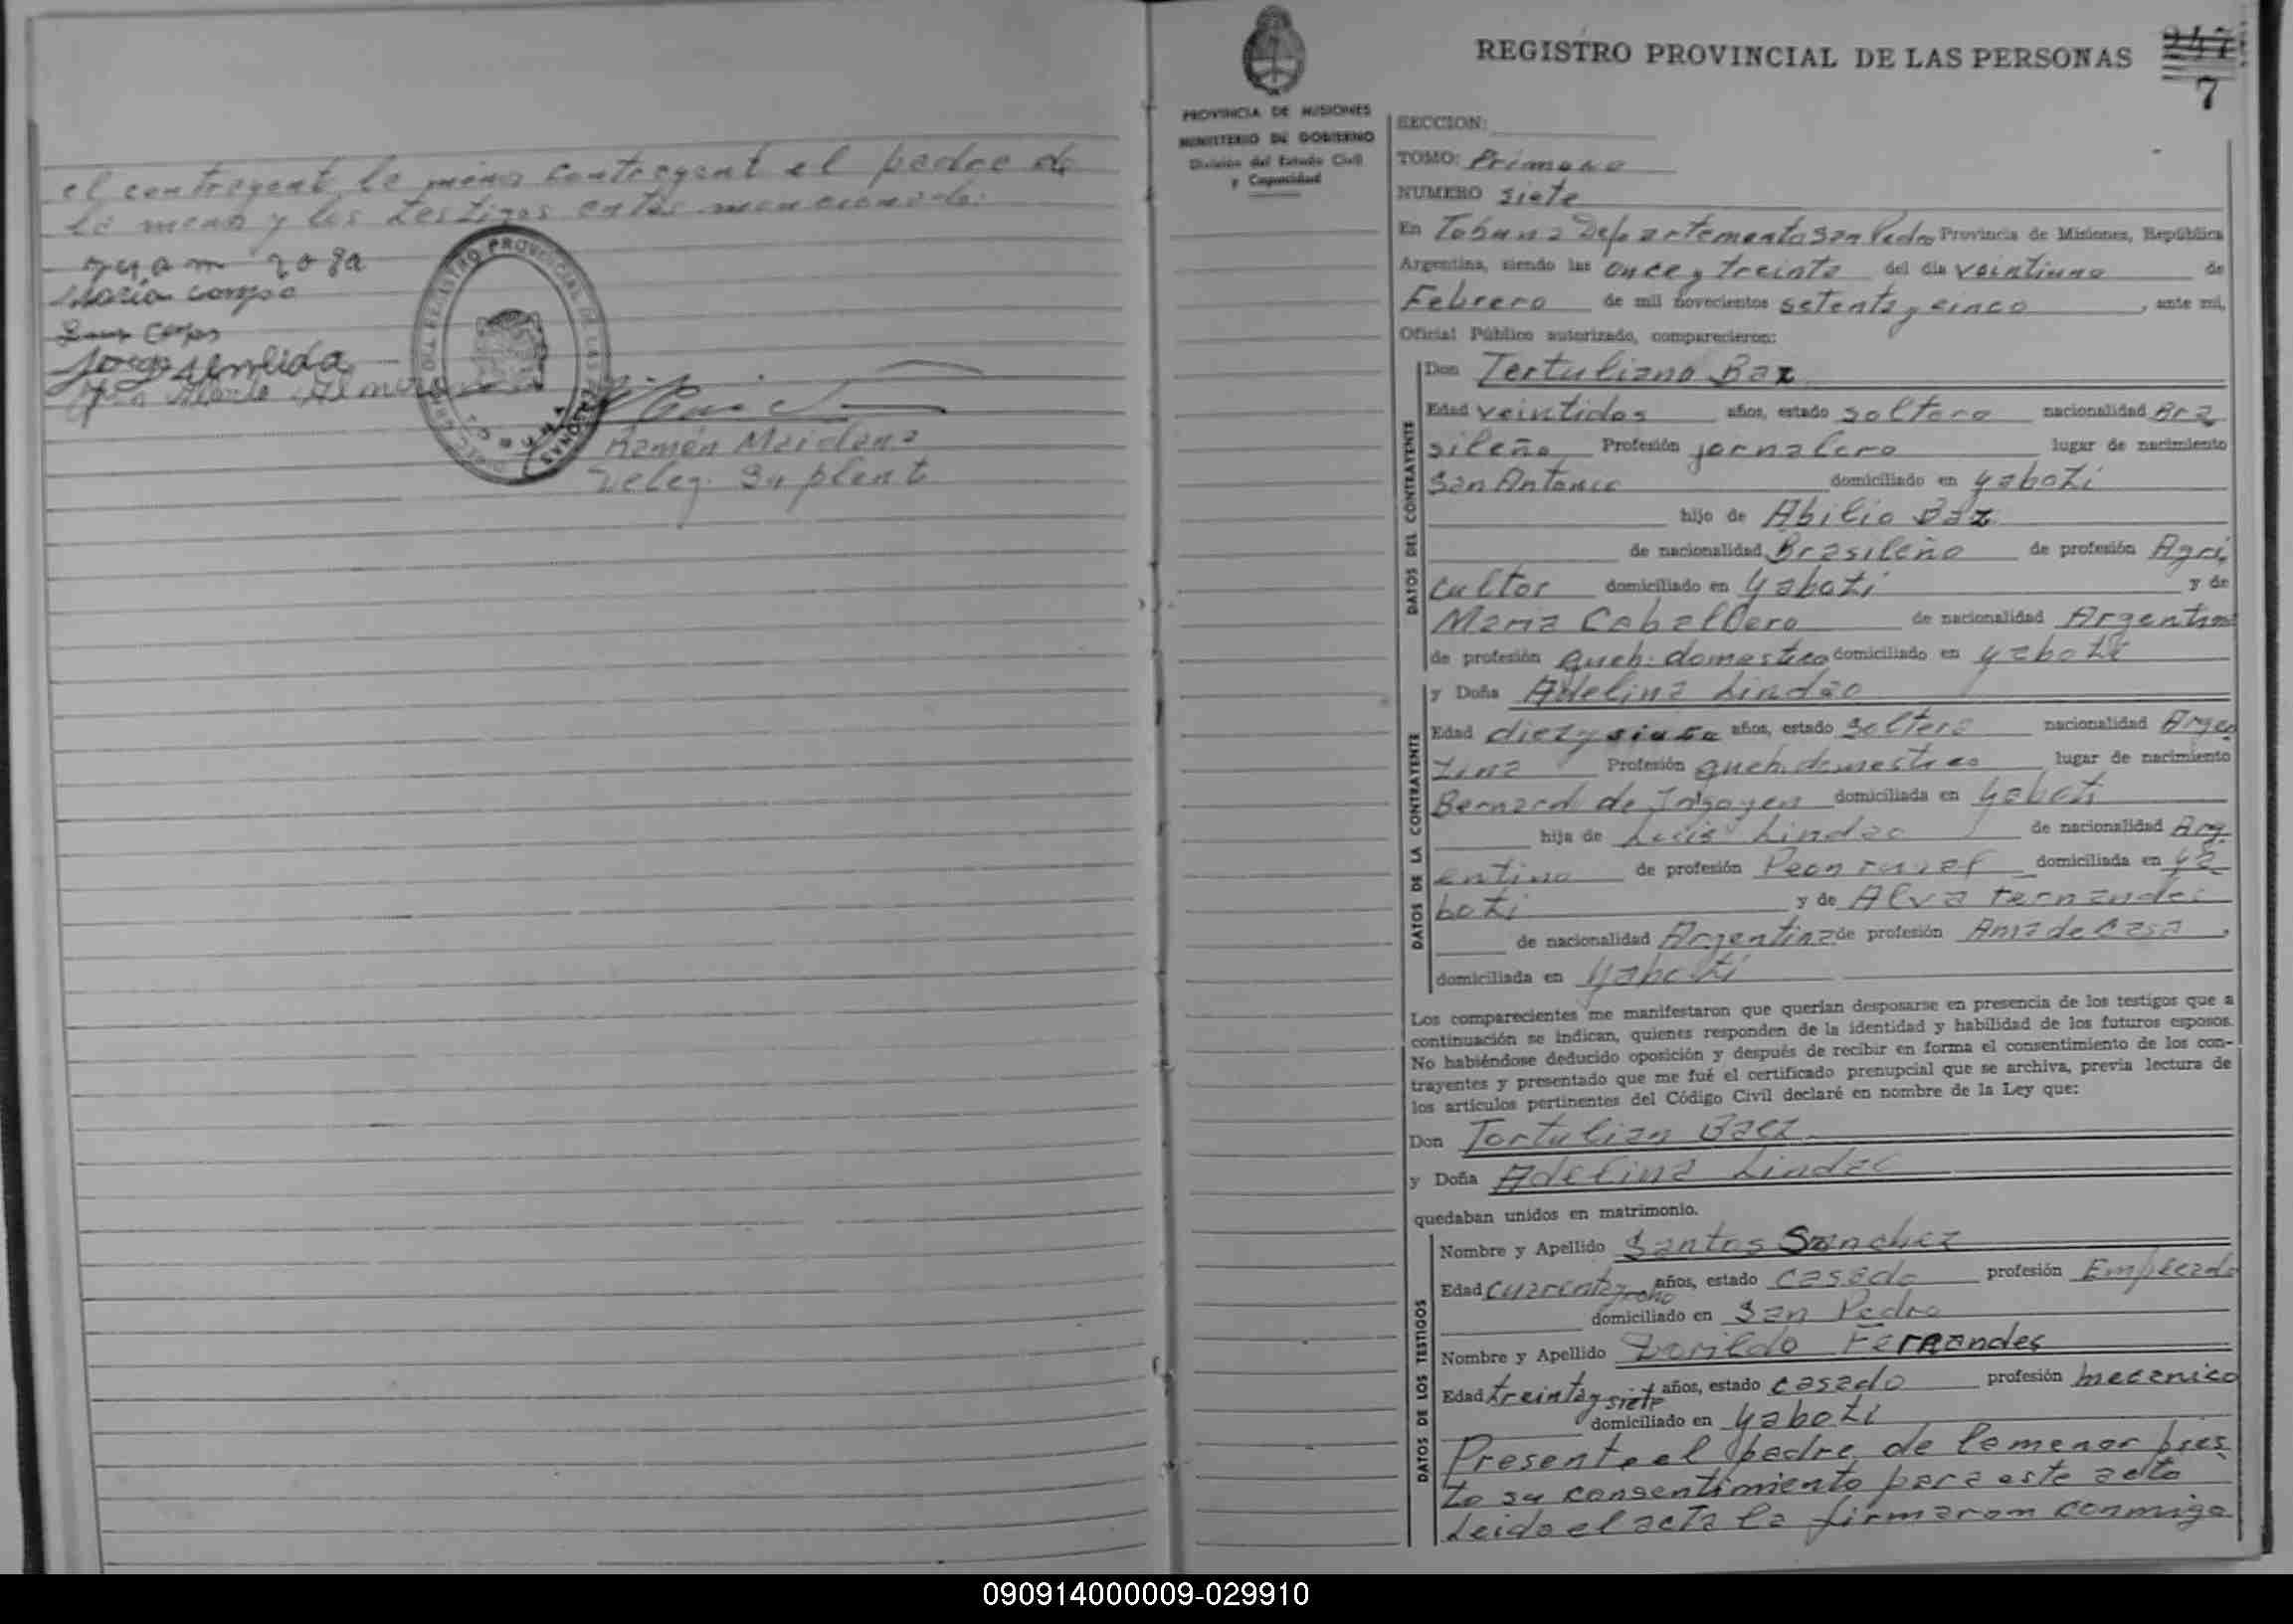 el contrayent la menor contrayent el padre de
la menor y los testigos antes mencionado.
Maria
Jorge Almeida
REGISTRO PROVINCIAL DE LAS PERSONAS
Ramón Maidana
Deleg. Suplent
REGISTRO PROVINCIAL DE LAS PERSONAS
247
7
PROVINCIA DE MISIONES
MINISTERIO DE GOBIERNO
División del Estado Civil
y Capacidad
SECCION:
TOMO: Primero
NUMERO siete
En Tobuna Departamento San Pedro Provincia de Misiones, República
Argentina, siendo las once y treinta del día veintiuno de
Febrero de mil novecientos setenta y cinco, ante mí,
Oficial Público autorizado, comparecieron:
DATOS DEL CONTRAYENTE
Don Tertuliano Baz
Edad veintidos años, estado soltero nacionalidad Bra
sileño Profesión jornalero lugar de nacimiento
San Antonio domiciliado en Yaboti
hijo de Abilio Baz
de nacionalidad Brasileño de profesión Agri,
cultor domiciliado en Yaboti y de
Maria Caballero de nacionalidad Argentina
de profesión queh. domestico domiciliado en Yaboti
DATOS DE LA CONTRAYENTE
y Doña Adelina Lindao
Edad diez y siete años, estado soltera nacionalidad Argen
tina Profesión queh. domestico lugar de nacimiento
Bernard de Irigoyen domiciliada en Yaboti
hija de Luis Lindao de nacionalidad Arg
entino de profesión Peon rural domiciliada en Ya
boti y de Alva Fernandes
de nacionalidad Argentina de profesión Ama de Casa,
domiciliada en Yaboti
Los comparecientes me manifestaron que querían desposarse en presencia de los testigos que a
continuación se indican, quienes responden de la identidad y habilidad de los futuros esposos.
No habiéndose deducido oposición y después de recibir en forma el consentimiento de los con-
trayentes y presentado que me fué el certificado prenupcial que se archiva, previa lectura de
los artículos pertinentes del Código Civil declaré en nombre de la Ley que:
Don Tortulian Baez
y Doña Adelina Lindao
quedaban unidos en matrimonio.
DATOS DE LOS TESTIGOS
Nombre y Apellido Santos Sanchez
Edad cuarenta y ocho años, estado casado profesión Empleado
domiciliado en San Pedro
Nombre y Apellido Dorildo Fernandes
Edad treinta y siete años, estado casado profesión mecanico
domiciliado en Yaboti
Presente el padre de la menor pres
to su consentimiento para este acto
Leida el acta la firmaron conmigo
090914000009-029910